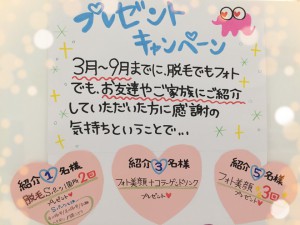 プレゼント
キャンペーン
3月〜9月までに、脱毛でもフォト
でも、お友達やご家族にご紹介
していただいた方に感謝の
気持ちということで…
紹介1名様
脱毛S.パーツ1箇所2回
プレゼント
紹介3名様
フォト美顔+コラーゲンドリンク
プレゼント
紹介5名様
フォト美顔
3回
プレゼント